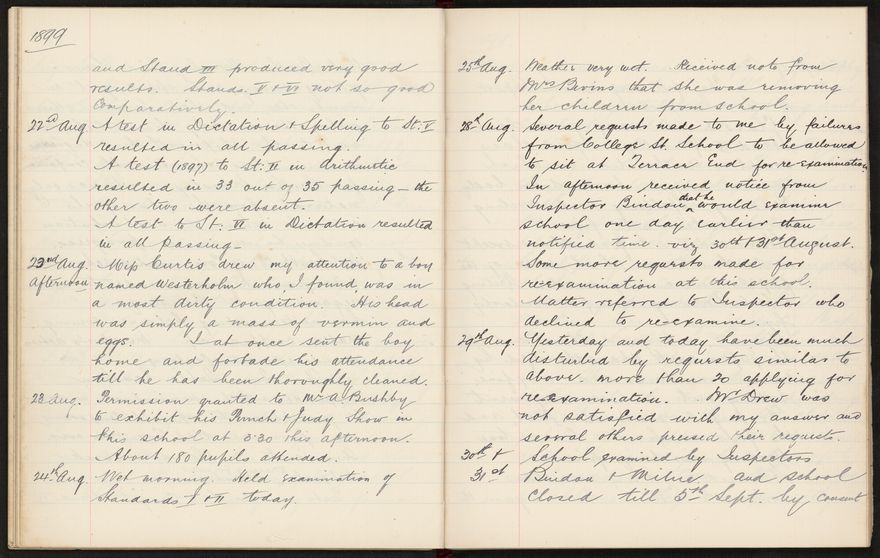 1899
and Stand III produced very good
results. Stands. V & VI not so good
Comparatively.
22nd Aug. A test in Dictation & Spelling to St. V
resulted in all passing.
A test (1897) to St: II in Arithmetic
resulted in 33 out of 35 passing — the
other two were absent.
A test to St. VI in Dictation resulted
in all passing —
23nd Aug. Miss Curtis drew my attention to a boy
afternoon named Westerholm who, I found, was in
a most dirty condition. His head
was simply a mass of vermin and
eggs. I at once sent the boy
home and forbade his attendance
till he has been thoroughly cleaned.
23 Aug. Permission granted to Mr A. Bushby
to exhibit his Punch & Judy Show in
this school at 3.30 this afternoon.
About 180 pupils attended.
24th Aug Wet morning. Held examination of
Standards I & II today.
25th Aug. Weather very wet. Received note from
Mrs Bevins that she was removing
her children from school.
28th Aug. Several requests made to me by failures
from College St. School to be allowed
to sit at Terrace End for re-examination.
In afternoon received notice from
Inspector Bindon that he would examine
school one day earlier than
notified time. viz 30th & 31st August.
Some more requests made for
re-examination at this school.
Matter referred to Inspector who
declined to re-examine.
29th Aug. Yesterday and today have been much
disturbed by requests similar to
above. more than 20 applying for
re-examination. Mr Drew was
not satisfied with my answer and
several others pressed their requests.
30th & School examined by Inspectors
31st Bindon & Milne and school
closed till 5th Sept. by consent